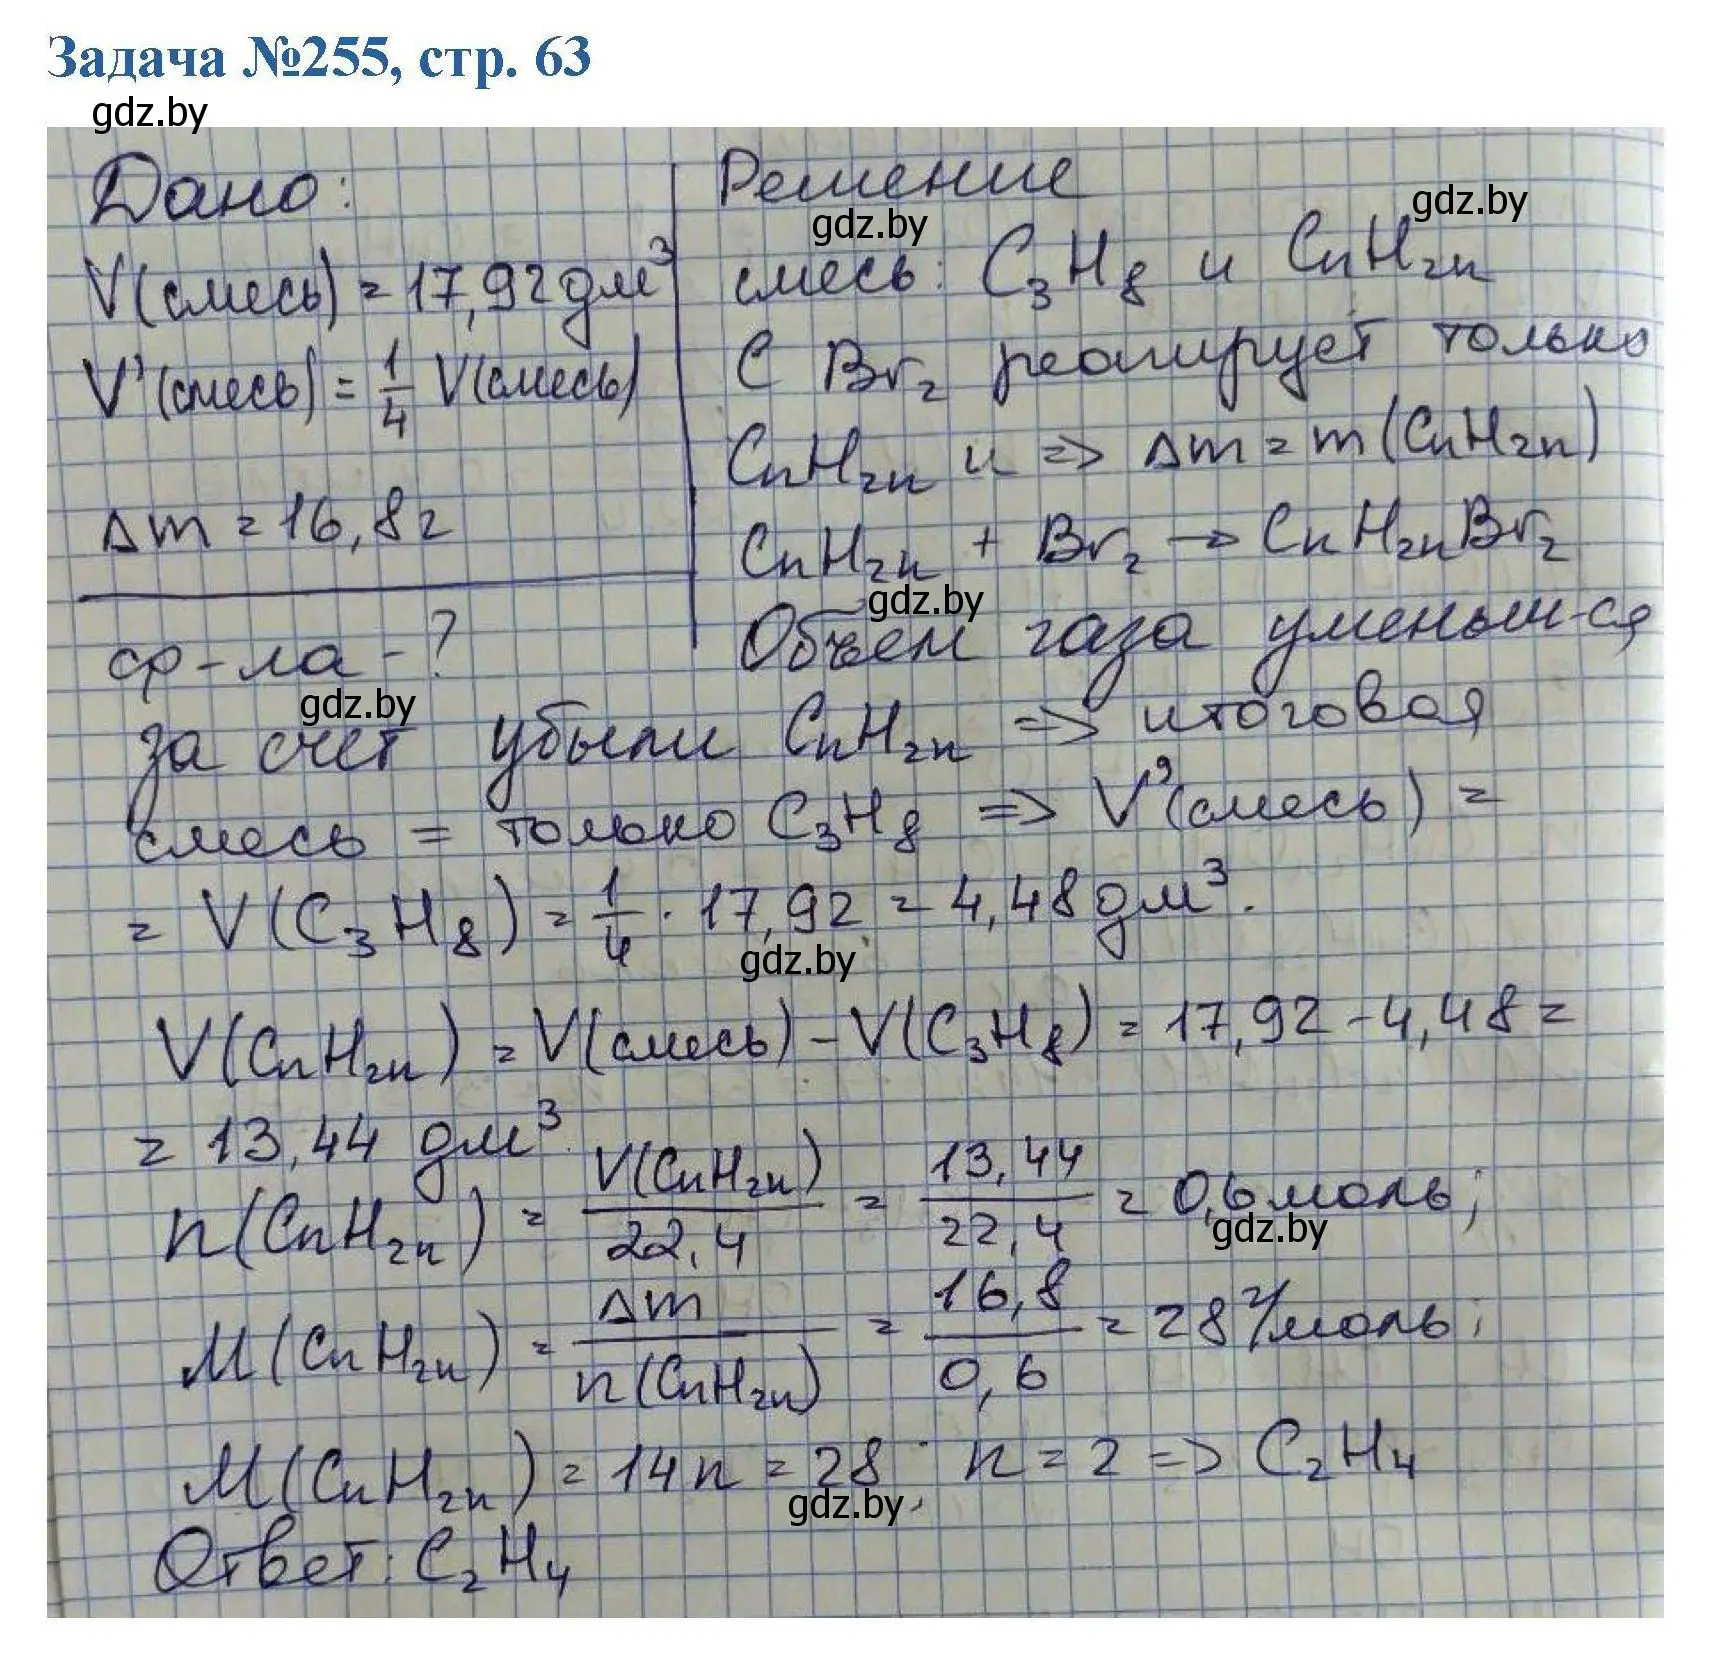 Задача №255, стр. 63
gdz.by
Дано:
V(смесь) = 17,92 дм³
V'(смесь) = 1/4 V(смесь)
Δm = 16,8 г
ф-ла - ?
Решение
gdz.by
gdz.by
смесь: C₃H₈ и CnH₂n
С Br₂ реагирует только
CnH₂n и => Δm = m(CnH₂n)
CnH₂n + Br₂ → CnH₂nBr₂
gdz.by
Объем газа уменьш-ся
gdz.by
за счет убыли CnH₂n => итоговая
смесь = только C₃H₈ => V'(смесь) =
= V(C₃H₈) = 1/4 · 17,92 = 4,48 дм³.
gdz.by
V(CnH₂n) = V(смесь) - V(C₃H₈) = 17,92 - 4,48 =
= 13,44 дм³.
n(CnH₂n) = V(CnH₂n)/22,4 = 13,44/22,4 = 0,6 моль;
gdz.by
M(CnH₂n) = Δm/n(CnH₂n) = 16,8/0,6 = 28 г/моль;
M(CnH₂n) = 14n = 28; n = 2 => C₂H₄
gdz.by
Ответ: C₂H₄